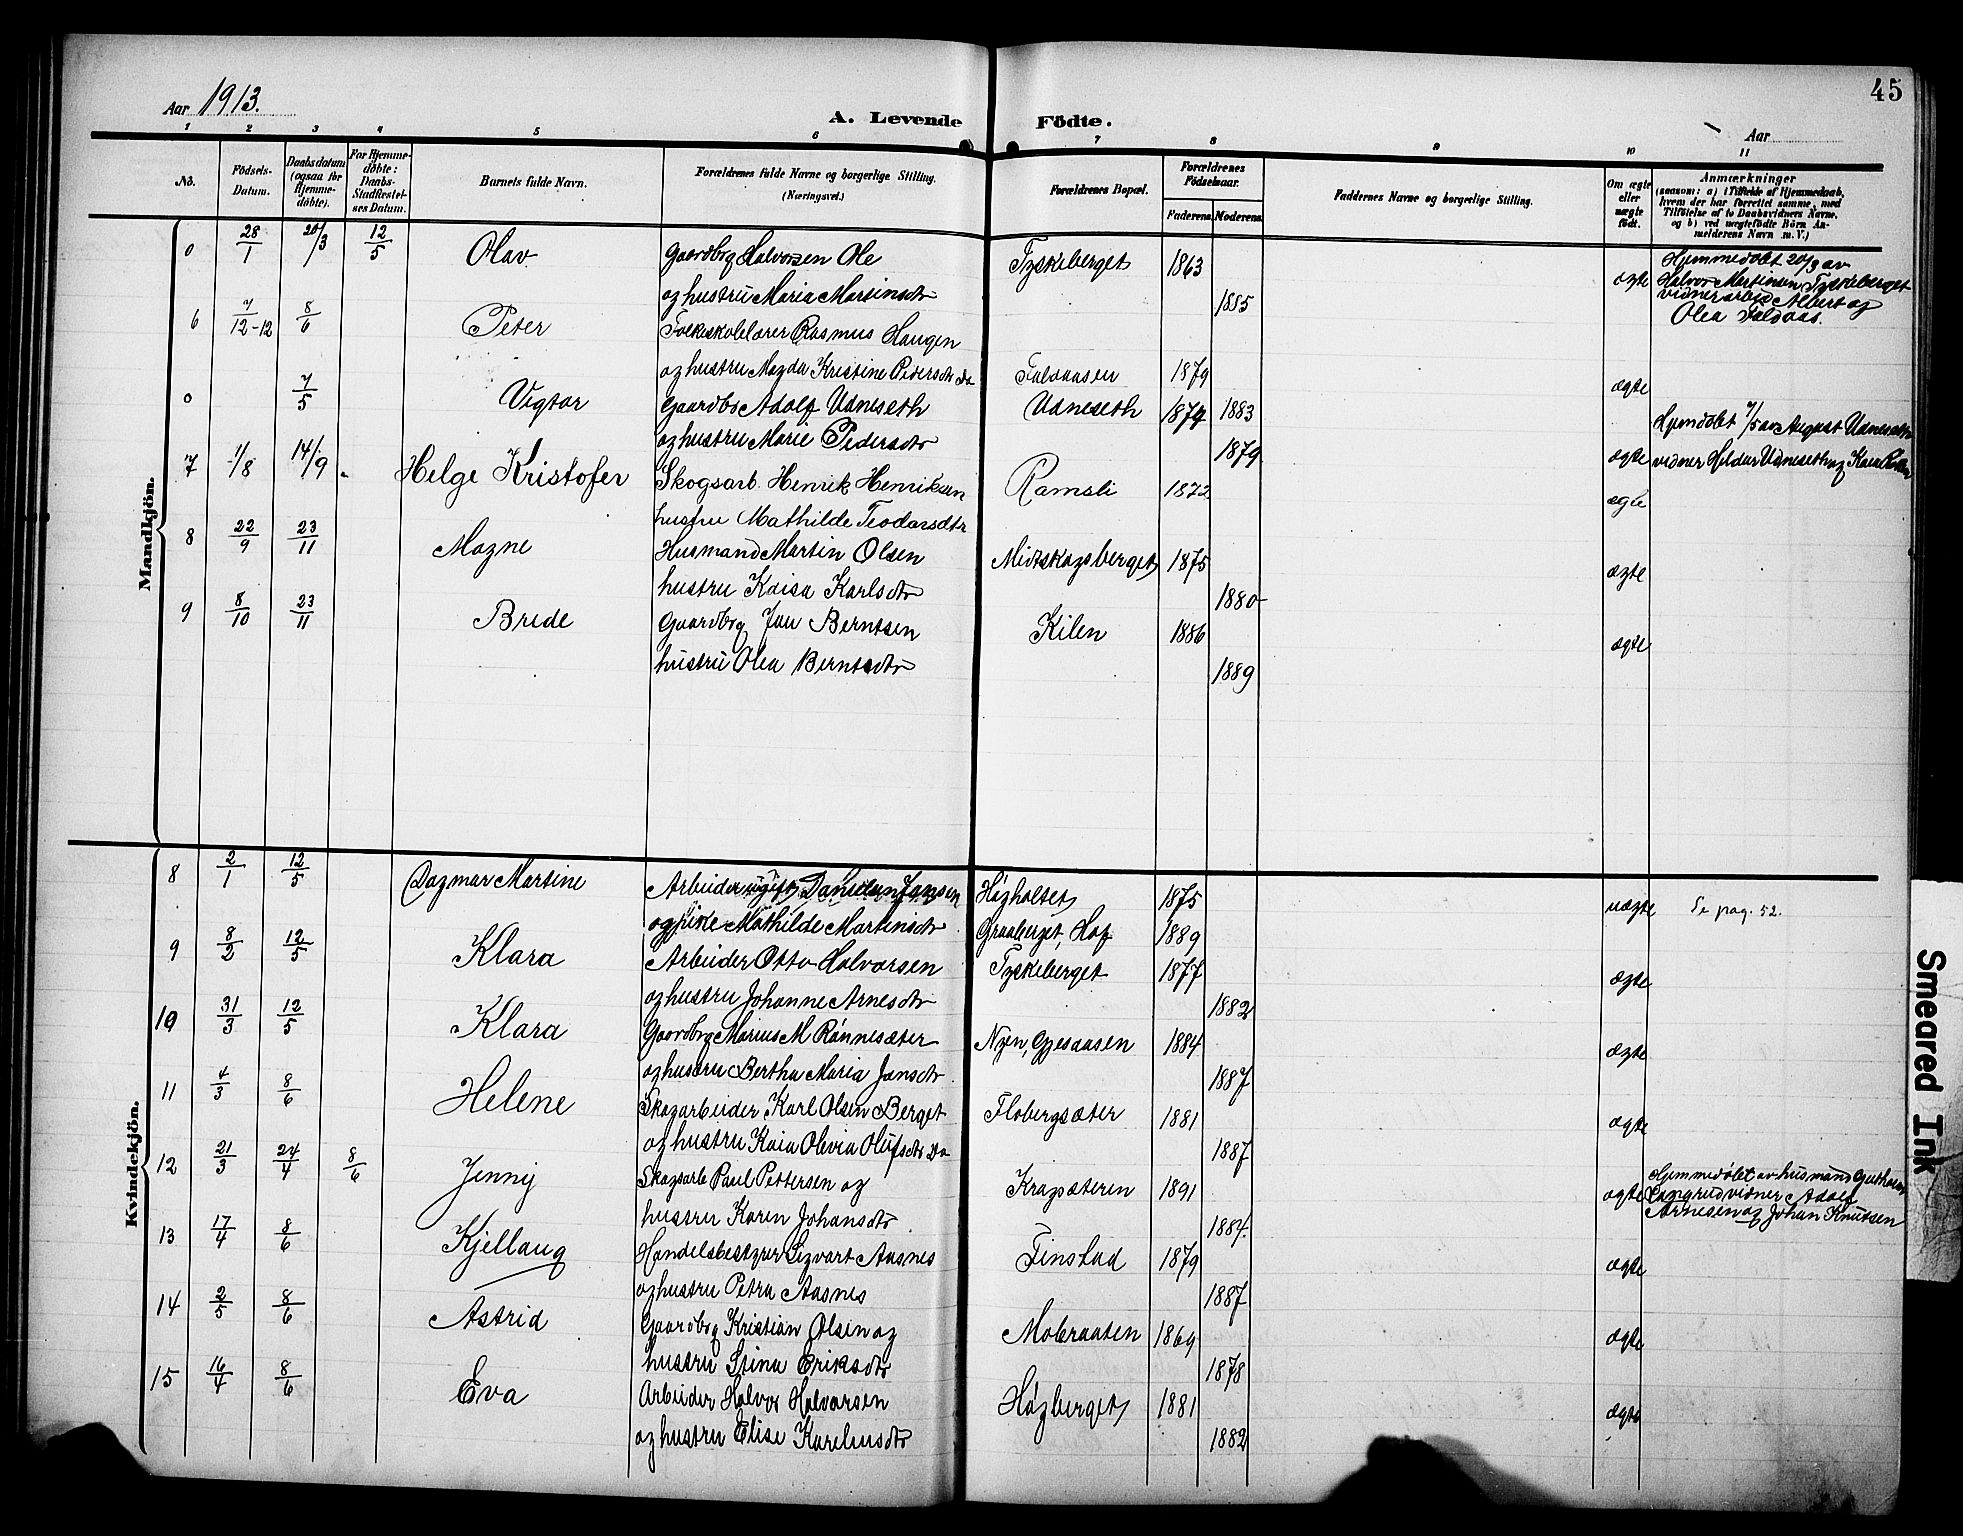 45
Aar 1913. A. Levende Födte. Aar
1 2 3 4 5 6 7 8 9 10 11
No. Födsels-Datum. Daabsdatum (ogsaa för Hjemme-döbte). For Hjemme-döbte: Daabs-Stadfæstel-ses Datum. Barnets fulde Navn. Forældrenes fulde Navne og borgerlige Stilling. (Næringsvei.) Forældrenes Bopæl. Forældrenes Födselsaar. Faderens. Moderens. Faddernes Navne og borgerlige Stilling. Om ægte eller uægte födt. Anmærkninger (saasom: a) i Tilfælde af Hjemmedaab, hvem der har forrettet samme, med Tilföielse af to Daabsvidners Navne, og b) ved uægtefödte Börn An-melderens Navn m. V.)
Mandkjön.
0 28/1 20/3 12/5 Olav Gaardbrg Halvorsen Ole Tyskeberget 1863
og hustru Maria Martinsdtr 1885 ægte Hjemmedøbt 20/3 av
Halvor Martinsen, Tyskeberget
vidner arbeid Albert og
Olea Faldaas.
6 7/12-12 8/6 Peter Folkeskolelærer Rasmus Haugen
og hustru Magda Kristine Pedersdtr Do Faldaasen 1879 ægte
0 7/5 Vigtor Gaardbr Adolf Udneseth Udneseth 1874 1883
og hustru Marie Pedersdtr 1879 ægte Hjemdøbt 7/5 av August Udneseth
vidner Hildur Udneseth og Kaia
7 1/8 14/9 Helge Kristofer Skogsarb. Henrik Henriksen Ramsli 1872 ægte
hustru Mathilde Teodorsdtr
8 22/9 23/11 Magne Husmand Martin Olsen Midtskogsberget 1875 ægte
hustru Kaisa Karlsdtr 1880
9 8/10 23/11 Bride Gaardbrg Jan Berntsen Kilen 1886 ægte
hustru Olea Berntsdtr 1889
Kvindekjön.
8 2/1 12/5 Dagmar Martine Arbeider ugift Danielsen Jansen Høgholtet 1875 uægte Se pag. 52.
og pike Mathilde Martinsdtr Graaberget, Hof 1889
9 8/2 12/5 Klara Arbeider Otto Halvorsen Tyskeberget 1877 ægte
og hustru Johanne Arnesdtr 1882
10 31/3 12/5 Klara Gaardbrg Marius M. Rønnesæter Nyen, Gjesaasen 1884 ægte
og hustru Bertha Maria Jansdtr 1887
11 4/3 8/6 Helene Skogarbeider Karl Olsen Berget Flobergsæter 1881 ægte
og hustru Kaia Olevia Olufsdtr Do 1887
12 21/3 24/4 8/6 Jenny Skogsarb Paul Pettersen og Kragsæteren 1891 ægte Hjemmedøbt av husmand Guthorm
Langrud vidner Adolf
Arnesen og Johan Knutsen
hustru Karen Johansdtr 1884.
13 17/4 8/6 Kjellaug Handelsbestyrer Sigvart Aasnes Finstad 1879 ægte
og hustru Petra Aasnes 1887
14 2/5 8/6 Astrid Gaardbrg Kristian Olsen og Mobraaten 1869 ægte
hustru Stina Eriksdtr 1878
15 16/4 8/6 Eva Arbeider Halvor Halvorsen Høgberget 1881 ægte
og hustru Elise Kareliusdtr 1882
Smeared Ink